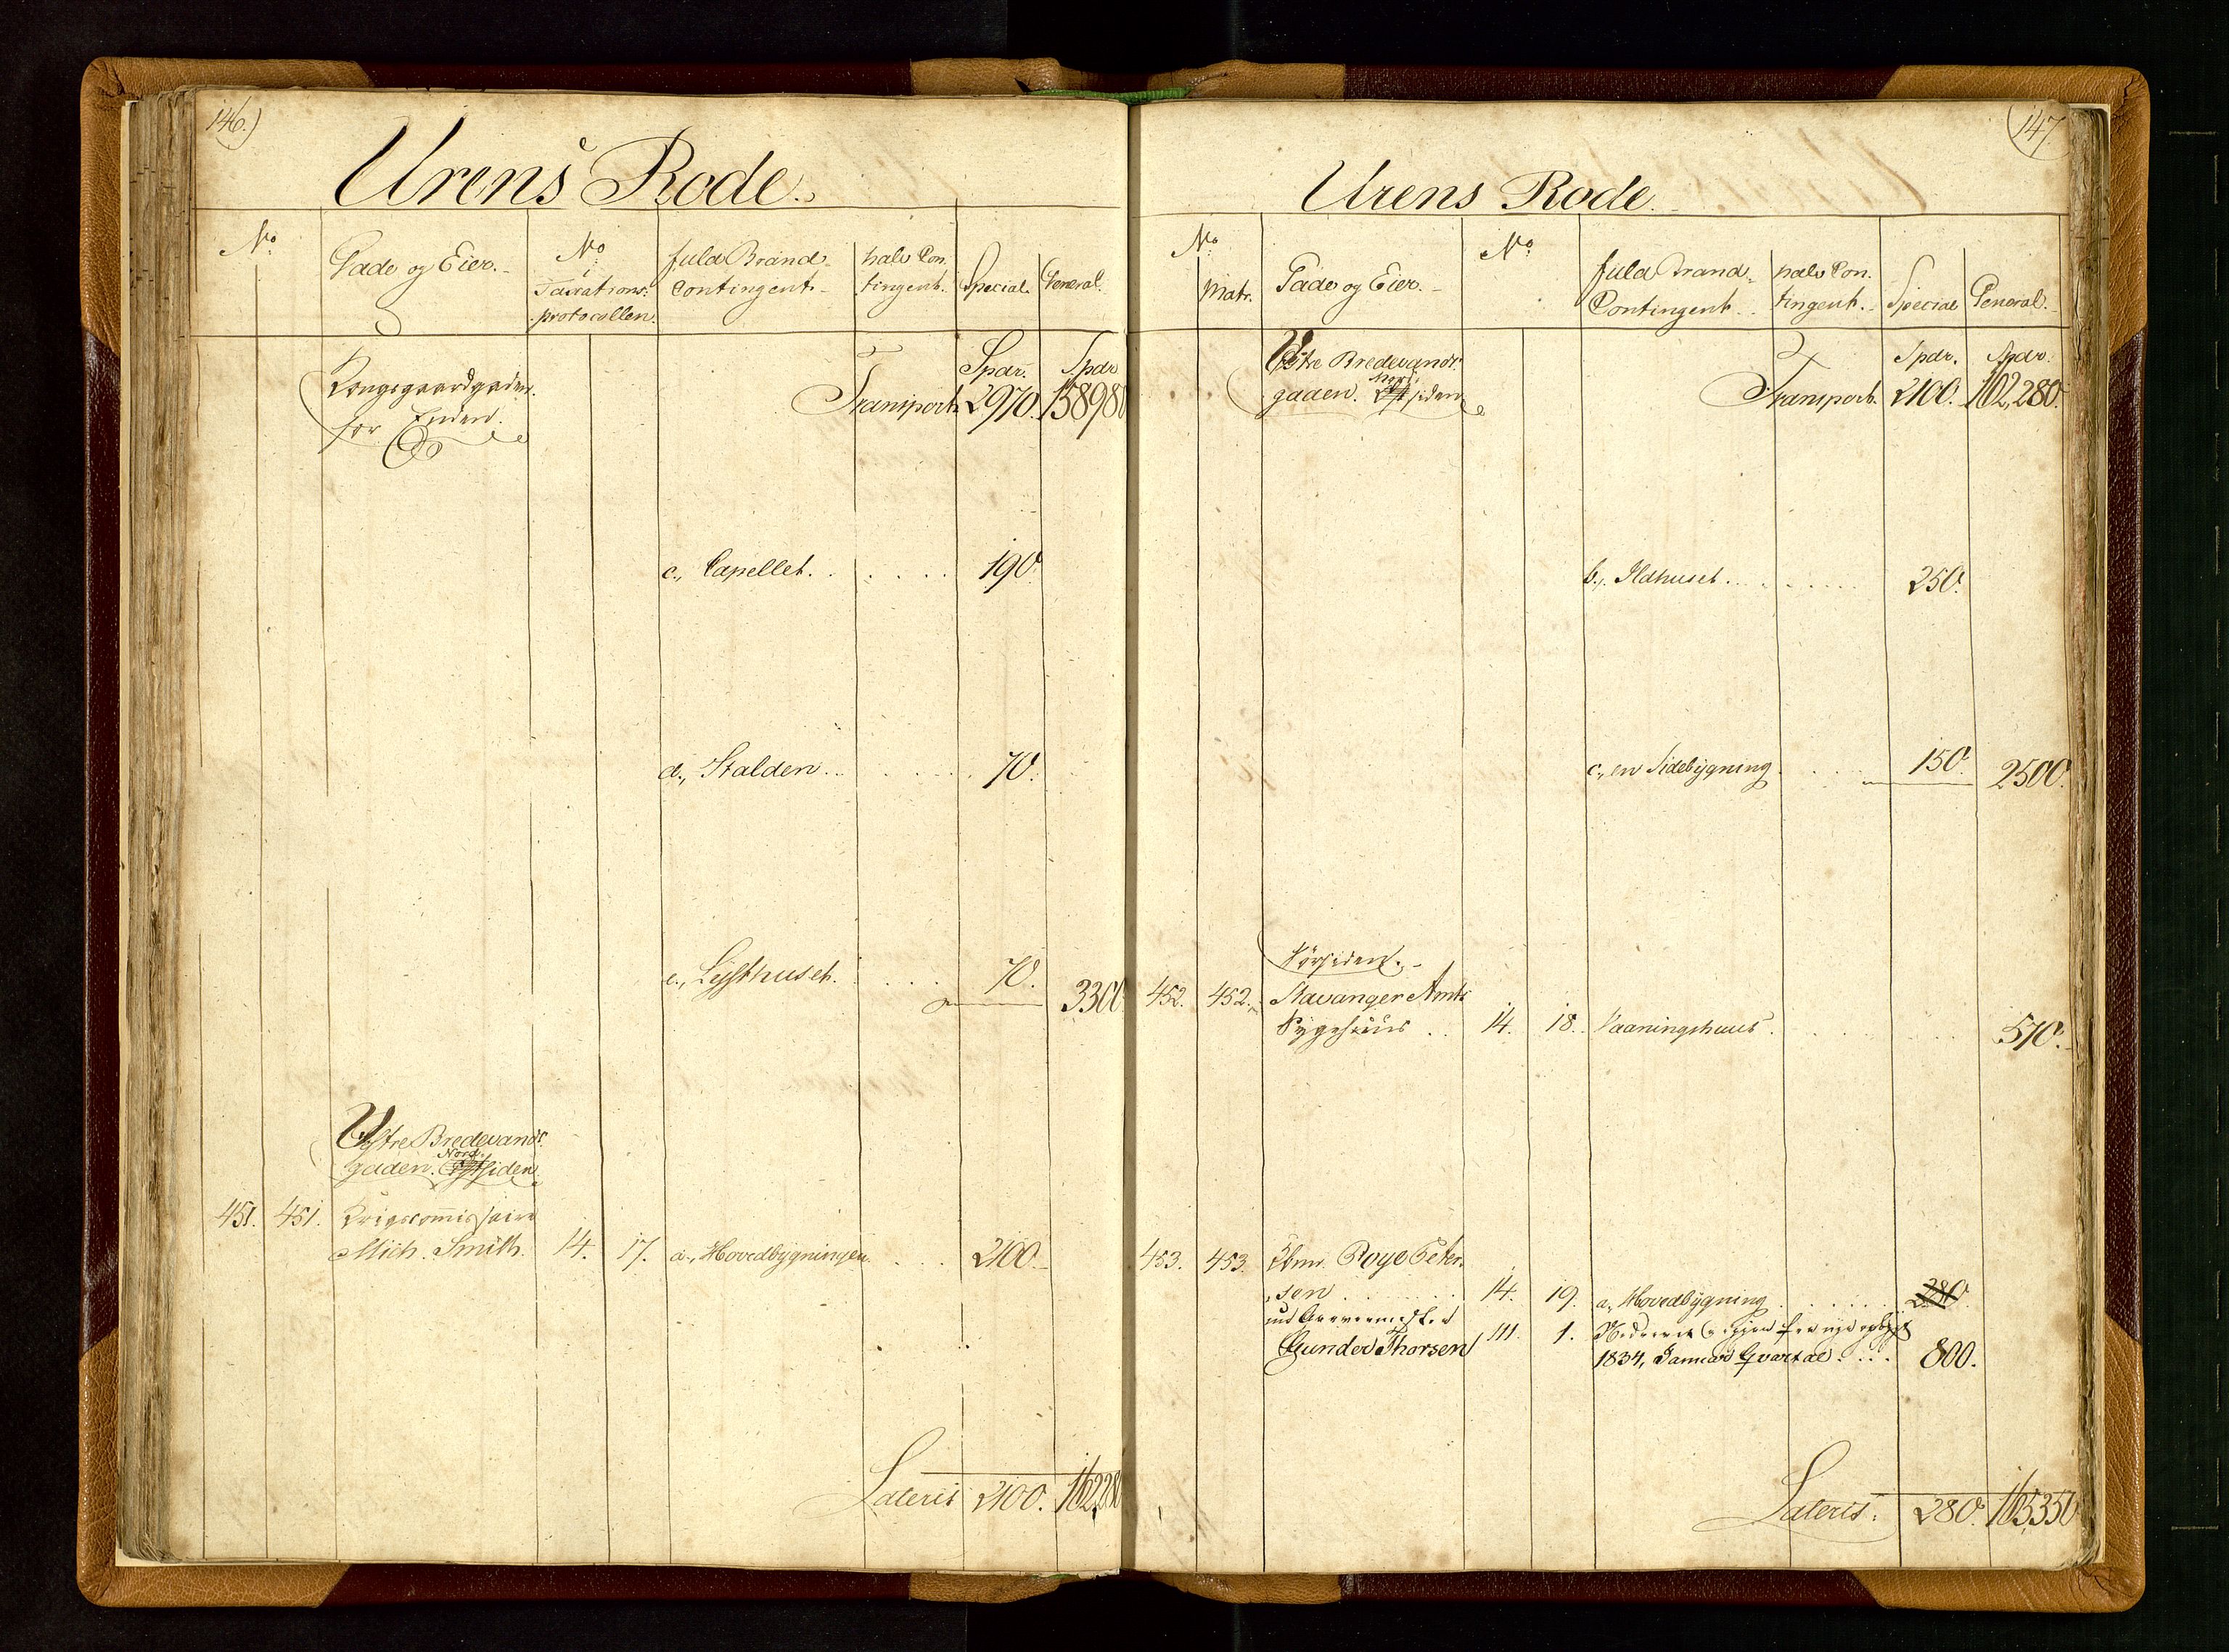 146.)
Urens Rode.
No
Gade og Eier.
No
i
Taxations-
protocollen.
fuld Brand-
Contingent
halv Con-
tingent.
Special.
General.
Kongsgaardgaden.
for Enden.
Spdr. Spdr.
Transport 2970. 158980
c., Capellet. 190.
d., Stalden. 70.
e., Lysthuset. 70. 3300
Østre Bredevands-
gaden. Nord siden
451. 451. Krigscommissaire
Mich. Smith. 14. 17. a., Hovedbygningen 2100.
Lateris 2100. 162,280
147.
Urens Rode.
No
Matr.
Gade og Eier.
No
fuld Brand-
Contingent.
halv Con-
tingent.
Special
General.
Østre Bredevands-
gaden. Nord siden
Spdr. Spdr.
Transport 2100. 162,280.
b., Ildhuset. 250.
c., en Sidebygning 150. 2500.
Nørsiden.
452. 452. Stavanger Amts
Sygehuus 14. 18. Vaaningshuus. 570.
453. 453. Peter-
sen 14. 19. a., Hovedbygning 280.
Gunder Thorsen 111. 1.
1834, Januar Qvartal 800.
Lateris. 280. 165,350